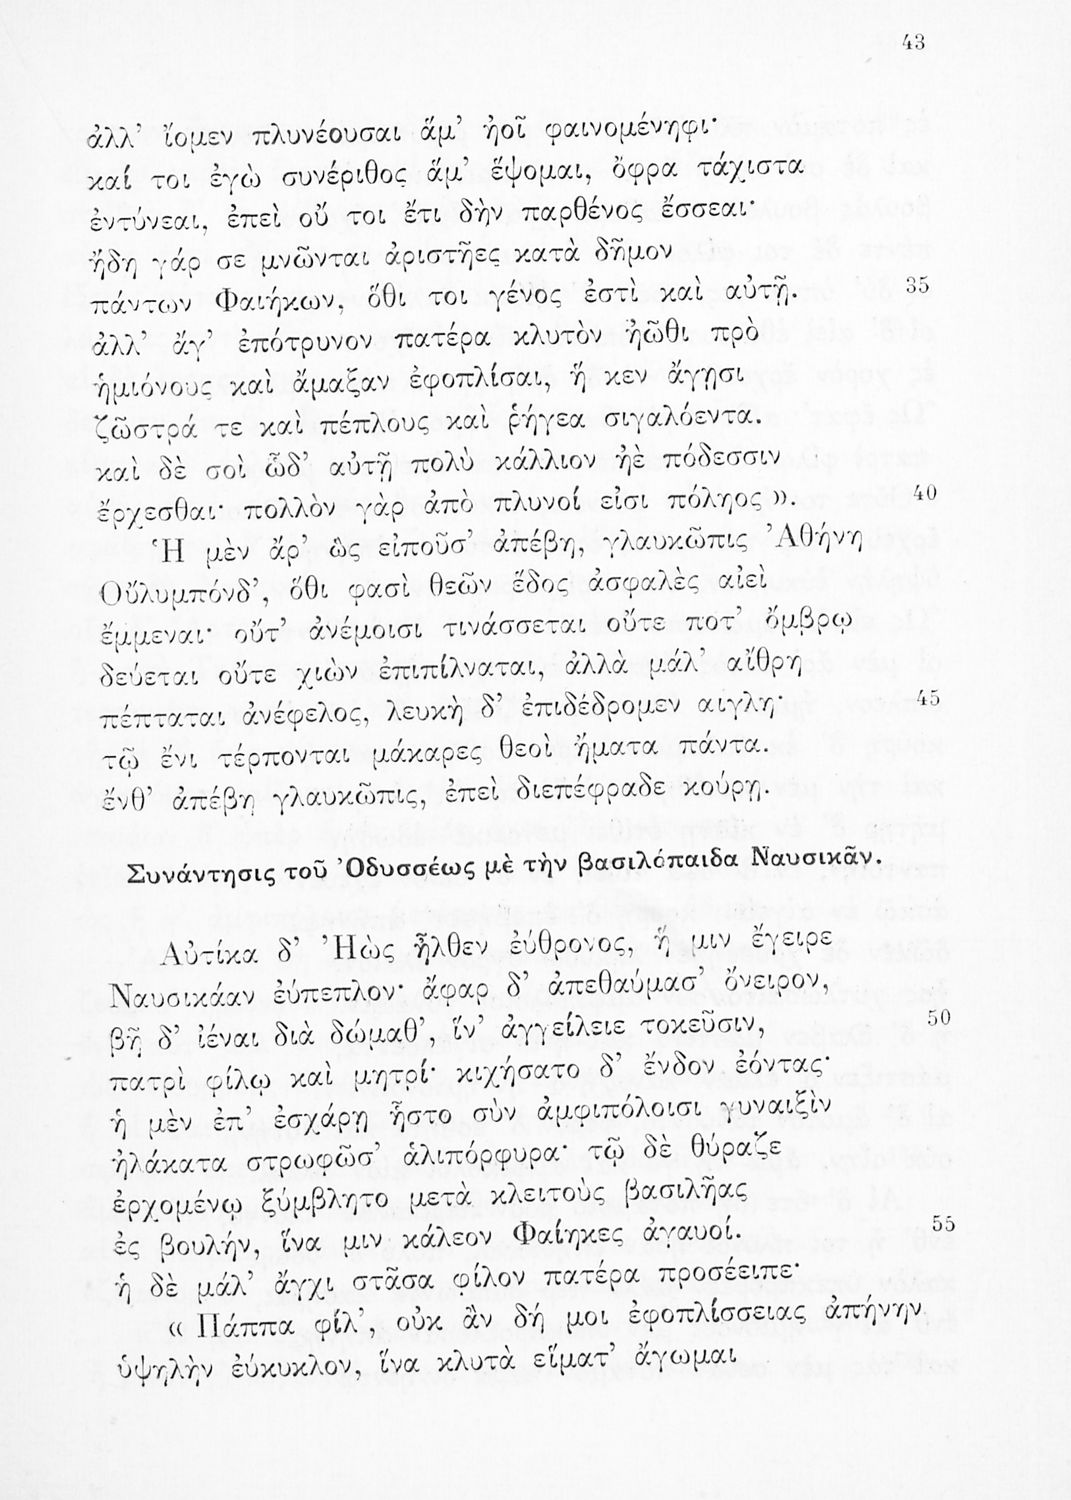 43
ἀλλ’ ἴομεν πλυνέουσαι ἅμ’ ἠοῖ φαινομένηφι·
καί τοι ἐγὼ συνέριθος ἅμ’ ἕψομαι, ὄφρα τάχιστα
ἐντύνεαι, ἐπεὶ οὔ τοι ἔτι δὴν παρθένος ἔσσεαι·
ἤδη γάρ σε μνῶνται ἀριστῆες κατὰ δῆμον
πάντων Φαιήκων, ὅθι τοι γένος ἐστὶ καὶ αὐτῇ. 35
ἀλλ’ ἄγ’ ἐπότρυνον πατέρα κλυτὸν ἠῶθι πρὸ
ἡμιόνους καὶ ἄμαξαν ἐφοπλίσαι, ἥ κεν ἄγῃσι
ζῶστρά τε καὶ πέπλους καὶ ῥήγεα σιγαλόεντα.
καὶ δὲ σοὶ ὧδ’ αὐτῇ πολὺ κάλλιον ἠὲ πόδεσσιν
ἔρχεσθαι· πολλὸν γὰρ ἀπὸ πλυνοί εἰσι πόληος ». 40
Ἡ μὲν ἄρ’ ὣς εἰποῦσ’ ἀπέβη, γλαυκῶπις Ἀθήνη
Οὔλυμπόνδ’, ὅθι φασὶ θεῶν ἕδος ἀσφαλὲς αἰεὶ
ἔμμεναι· οὔτ’ ἀνέμοισι τινάσσεται οὔτε ποτ’ ὄμβρῳ
δεύεται οὔτε χιὼν ἐπιπίλναται, ἀλλὰ μάλ’ αἴθρη
πέπταται ἀνέφελος, λευκὴ δ’ ἐπιδέδρομεν αιγλη· 45
τῷ ἔνι τέρπονται μάκαρες θεοὶ ἤματα πάντα.
ἔνθ’ ἀπέβη γλαυκῶπις, ἐπεὶ διεπέφραδε κούρῃ.
Συνάντησις τοῦ Ὀδυσσέως μὲ τὴν βασιλόπαιδα Ναυσικᾶν.
Αὐτίκα δ’ Ἠὼς ἦλθεν ἐύθρονος, ἥ μιν ἔγειρε
Ναυσικάαν ἐύπεπλον· ἄφαρ δ’ ἀπεθαύμασ’ ὄνειρον,
βῆ δ’ ἰέναι διὰ δώμαθ’, ἵν’ ἀγγείλειε τοκεῦσιν, 50
πατρὶ φίλῳ καὶ μητρί· κιχήσατο δ’ ἔνδον ἐόντας·
ἡ μὲν ἐπ’ ἐσχάρῃ ἧστο σὺν ἀμφιπόλοισι γυναιξὶν
ἠλάκατα στρωφῶσ’ ἁλιπόρφυρα· τῷ δὲ θύραζε
ἐρχομένῳ ξύμβλητο μετὰ κλειτοὺς βασιλῆας
ἐς βουλήν, ἵνα μιν κάλεον Φαίηκες ἀγαυοί. 55
ἡ δὲ μάλ’ ἄγχι στᾶσα φίλον πατέρα προσέειπε·
« Πάππα φίλ’, οὐκ ἂν δή μοι ἐφοπλίσσειας ἀπήνην
ὑψηλὴν ἐύκυκλον, ἵνα κλυτὰ εἵματ’ ἄγωμαι